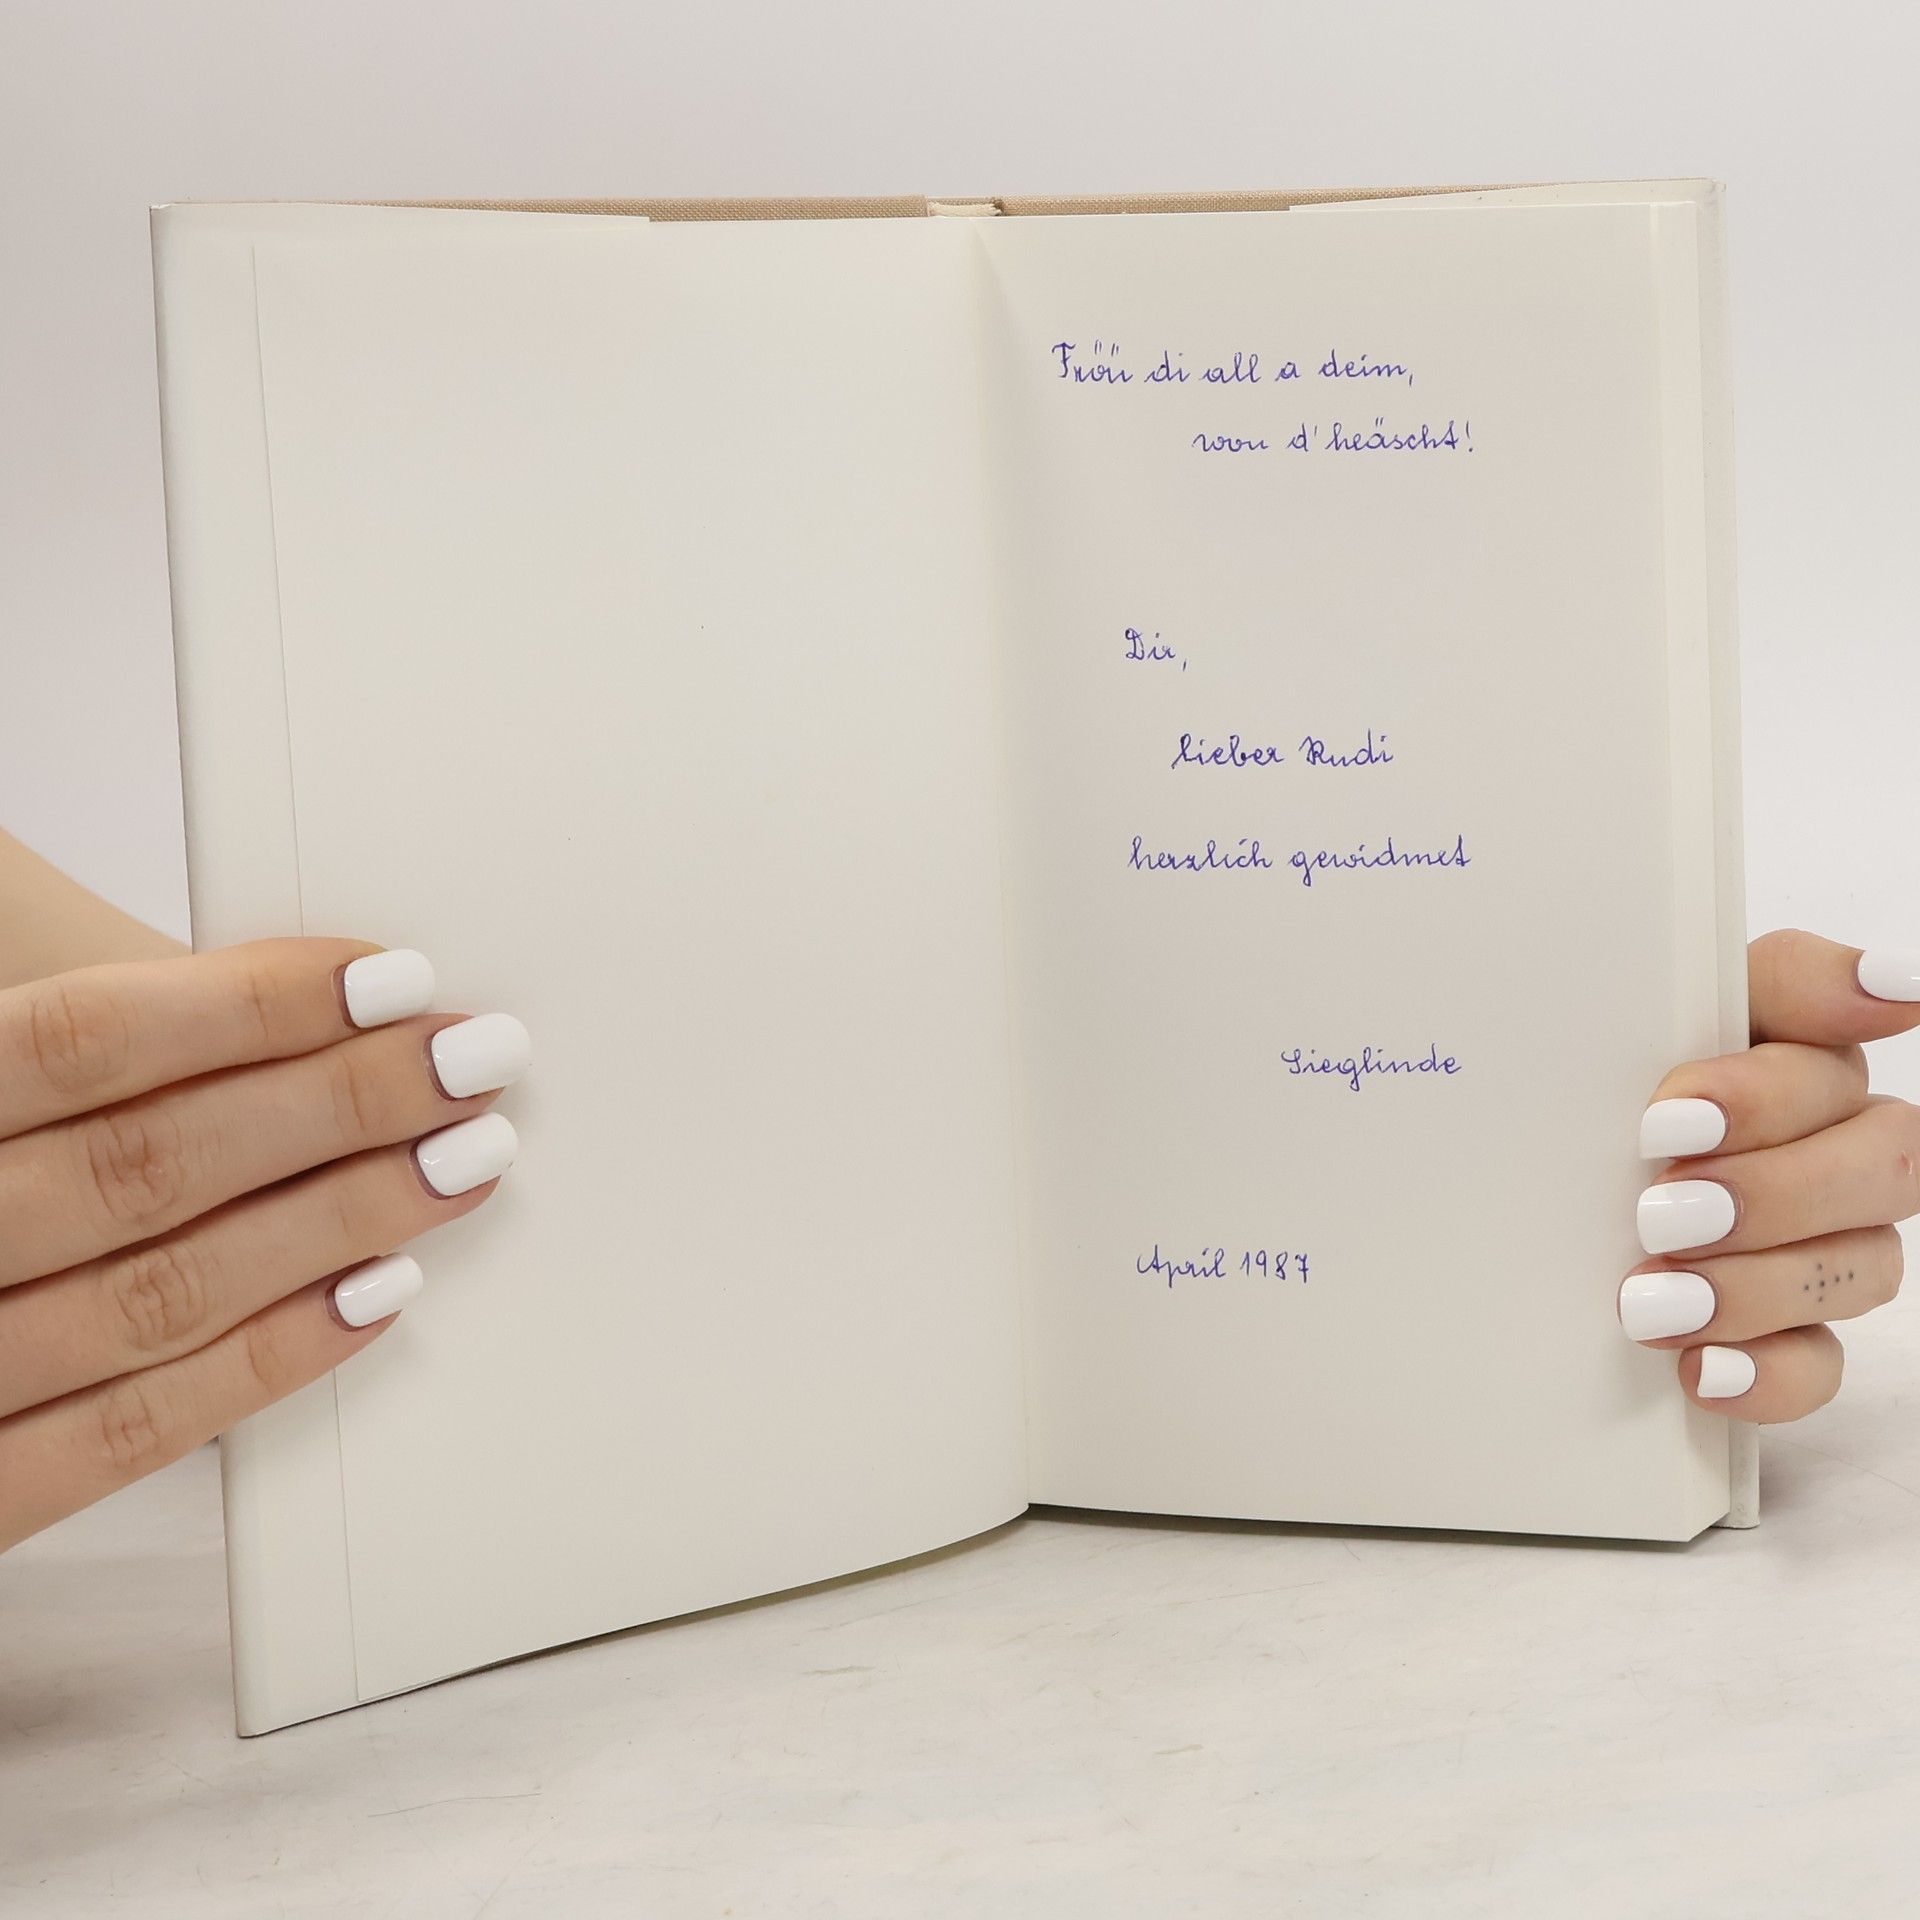 Fröü di all a deim,
won d'heäscht!
Dir,
lieber Rudi
herzlich gewidmet
Sieglinde
April 1987